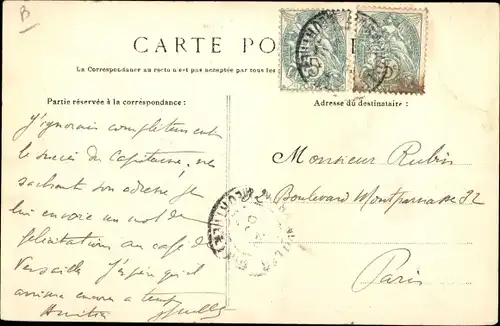 B
CARTE PO
La Correspondance au recto n'est pas acceptée par tous les
Partie réservée à la correspondance :
Adresse du destinataire :
J'ignorais complètement
le succès du Capitaine, ne
sachant son adresse je
lui envoie un mot de
félicitations au café de
Versailles J'espère qu'il
arrivera encore à temps
Monsieur Rubin
Boulevard Montparnasse 32
Paris